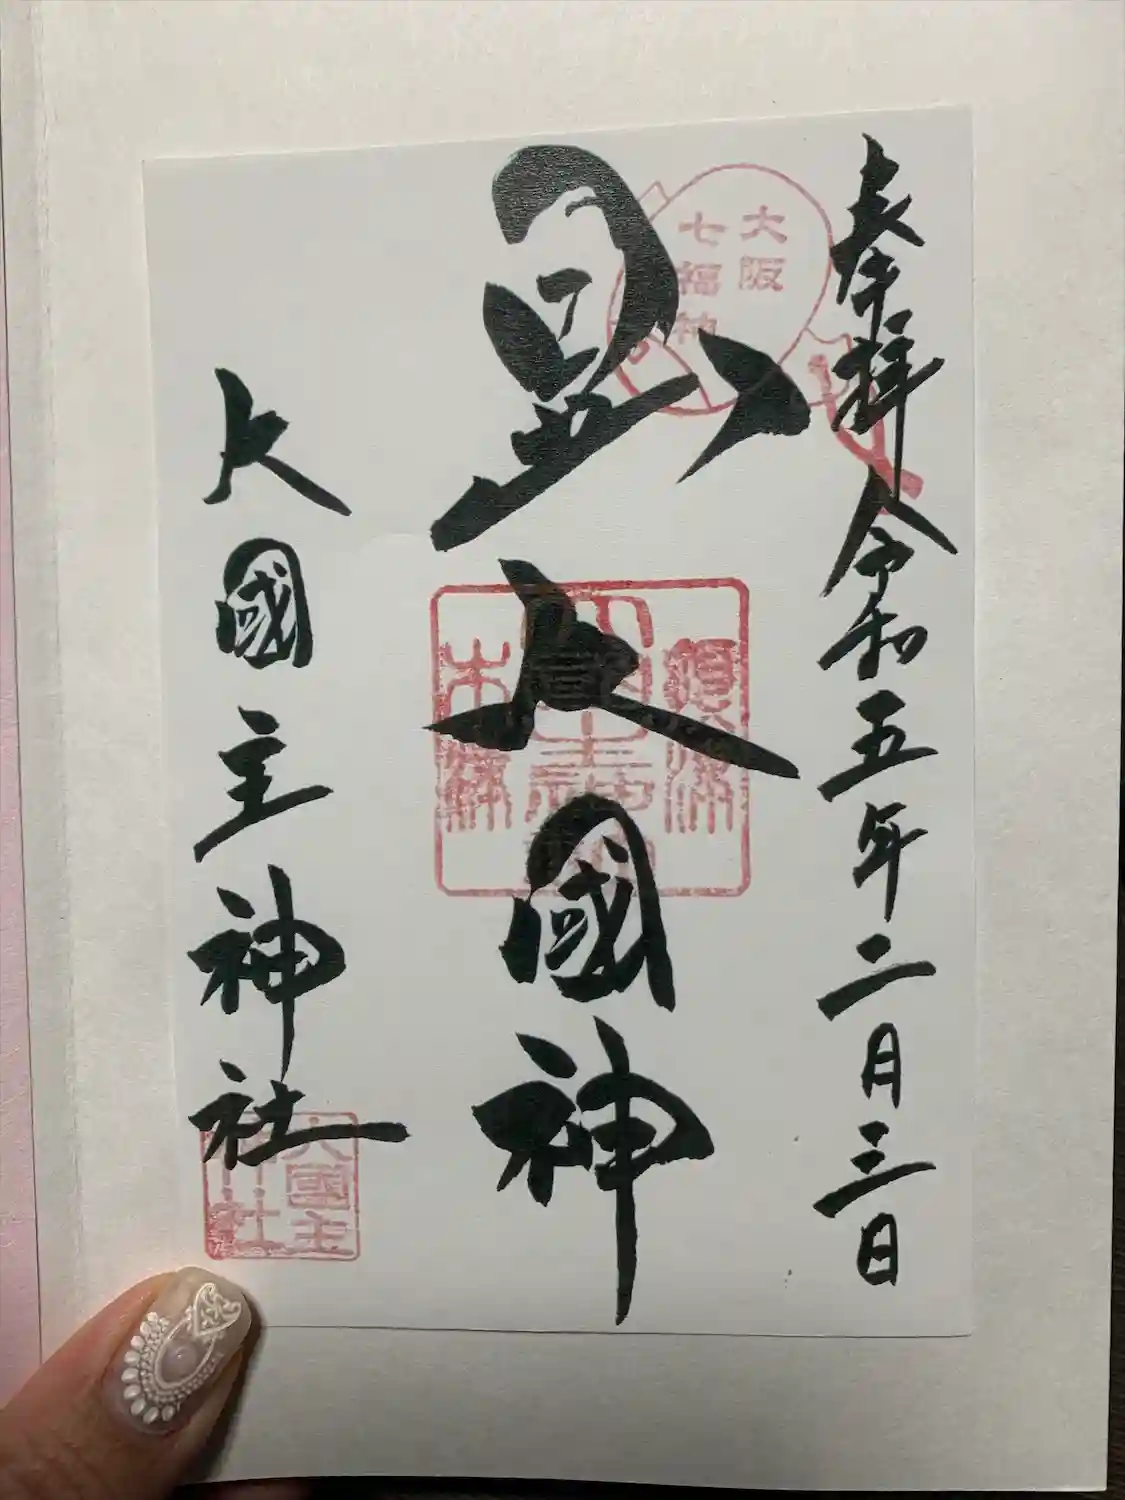 奉拝 令和五年二月三日
大阪
七福神
大國神
大國主神社
大國主
神社